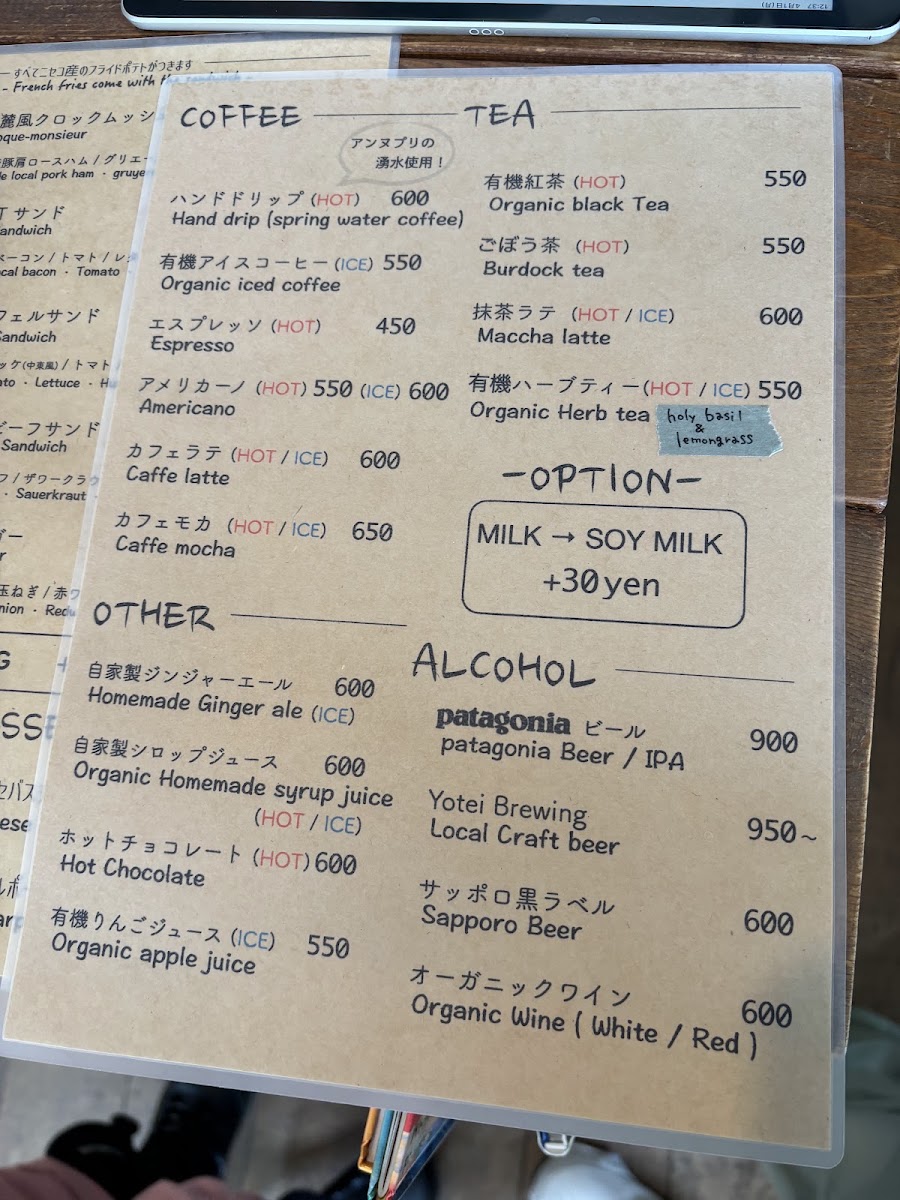 12:37 4月1日(月)
すべてニセコ産のフライドポテトがつきます
- French fries come with the sandwich -
麓風クロックムッシ
oque-monsieur
豚肩ロースハム / グリエー
le local pork ham ・ gruye
T サンド
andwich
ベーコン / トマト / レ
cal bacon ・ Tomato
フェルサンド
Sandwich
ッケ(中東風) / トマト
ato ・ Lettuce ・ H
ビーフサンド
Sandwich
フ / ザワークラウ
・ Sauerkraut
ガー
r
玉ねぎ / 赤ワ
nion ・ Red
G +
SSE
セパス
ese
ルポ
arp
COFFEE
アンヌプリの
湧水使用！
ハンドドリップ (HOT) 600
Hand drip (spring water coffee)
有機アイスコーヒー (ICE) 550
Organic iced coffee
エスプレッソ (HOT) 450
Espresso
アメリカーノ (HOT) 550 (ICE) 600
Americano
カフェラテ (HOT / ICE) 600
Caffe latte
カフェモカ (HOT / ICE) 650
Caffe mocha
OTHER
自家製ジンジャーエール 600
Homemade Ginger ale (ICE)
自家製シロップジュース 600
Organic Homemade syrup juice
(HOT / ICE)
ホットチョコレート (HOT) 600
Hot Chocolate
有機りんごジュース (ICE) 550
Organic apple juice
TEA
有機紅茶 (HOT) 550
Organic black Tea
ごぼう茶 (HOT) 550
Burdock tea
抹茶ラテ (HOT / ICE) 600
Maccha latte
有機ハーブティー(HOT / ICE) 550
Organic Herb tea
holy basil
&
lemongrass
-OPTION-
MILK → SOY MILK
+30yen
ALCOHOL
patagonia ビール 900
patagonia Beer / IPA
Yotei Brewing 950~
Local Craft beer
サッポロ黒ラベル 600
Sapporo Beer
オーガニックワイン 600
Organic Wine ( White / Red )